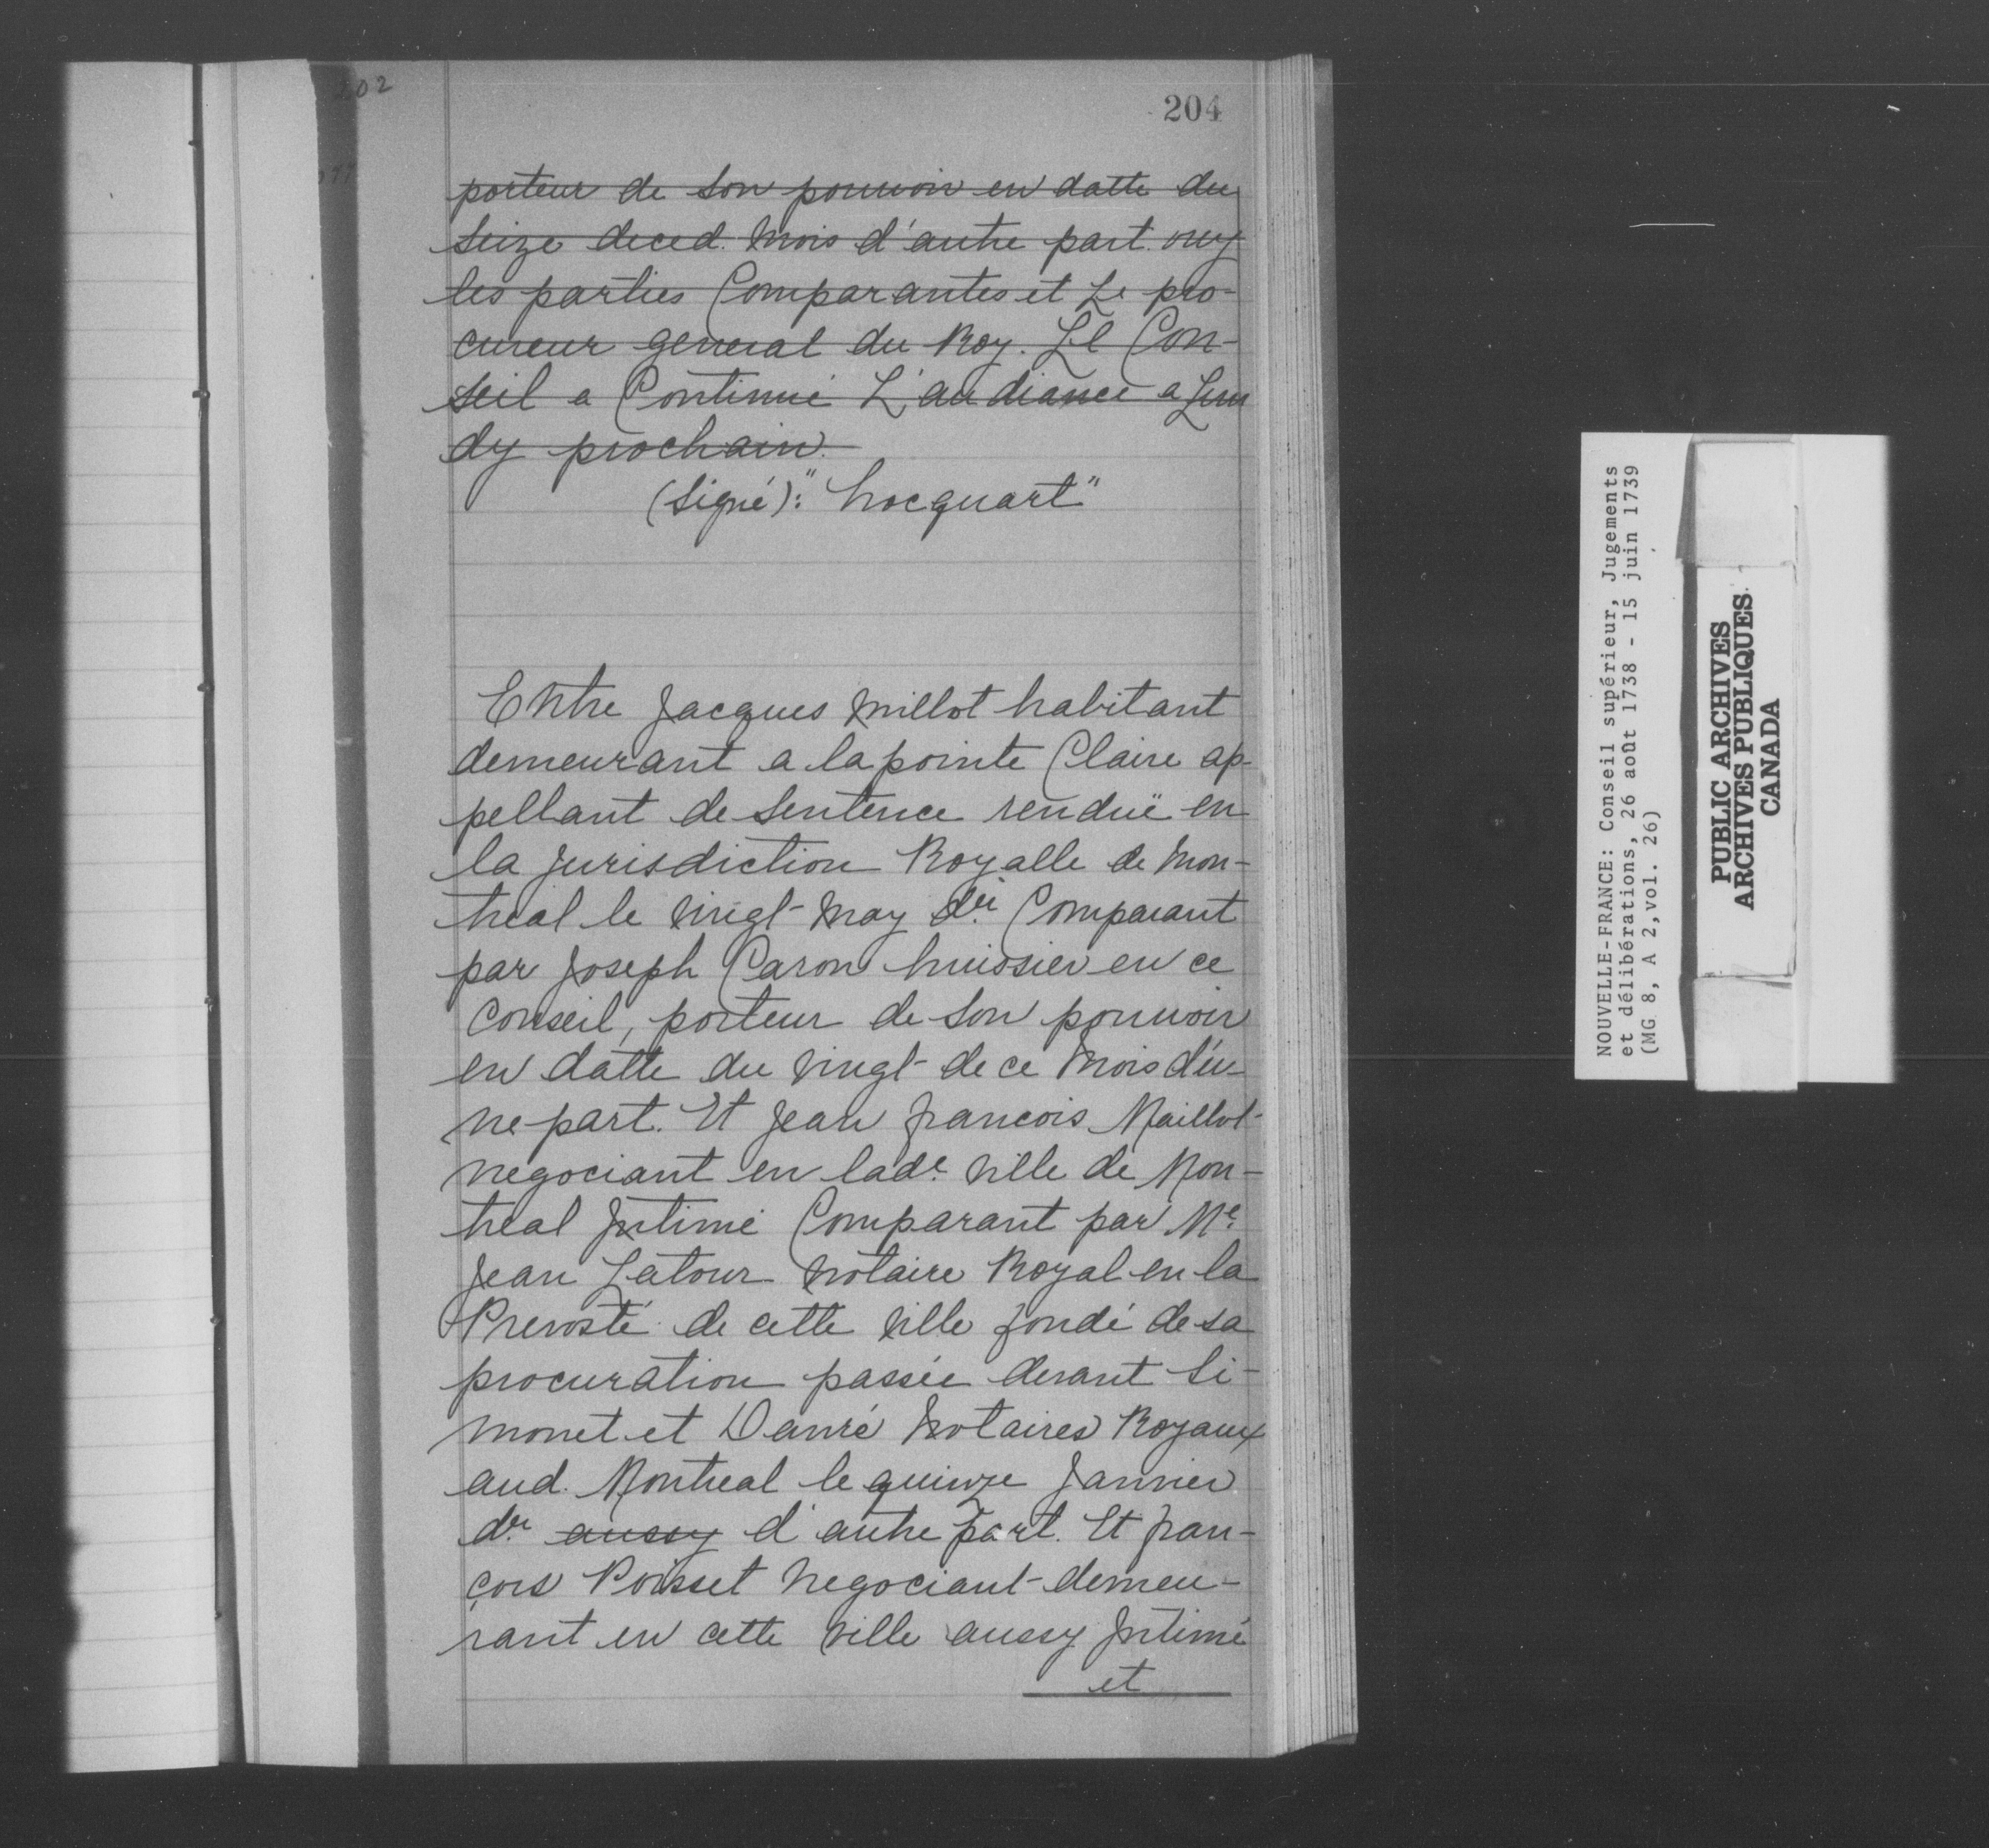 202
204
porteur de son pouvoir en datte du
seize deced. mois d'autre part. ouy
les parties Comparantes et Le pro-
cureur general du Roy. Le Con-
seil a Continué L'audiance a Lun
dy prochain.
(Signé): "hocquart"
Entre Jacques Millot habitant
demeurant a la pointe Claire ap-
pellant de sentence renduë en
la Jurisdiction Royalle de Mon-
treal le vingt May der Comparant
par Joseph Caron huissier en ce
Conseil, porteur de son pouvoir
en datte du vingt de ce mois d'u-
ne part. Et Jean francois Maillot
negociant en lade ville de Mon-
treal Intimé Comparant par Me
Jean Latour Notaire Royal en la
Prevosté de cette ville fondé de sa
procuration passée devant Si-
monet et Danré Notaires Royaux
aud. Montreal le quinze Janvier
der aussy d'autre part. Et fran-
çois Poisset Negociant demeu-
rant en cette ville aussy Intimé
et
NOUVELLE-FRANCE: Conseil supérieur, Jugements
et délibérations, 26 août 1738 - 15 juin 1739
(MG 8, A 2,vol. 26)
PUBLIC ARCHIVES
ARCHIVES PUBLIQUES
CANADA